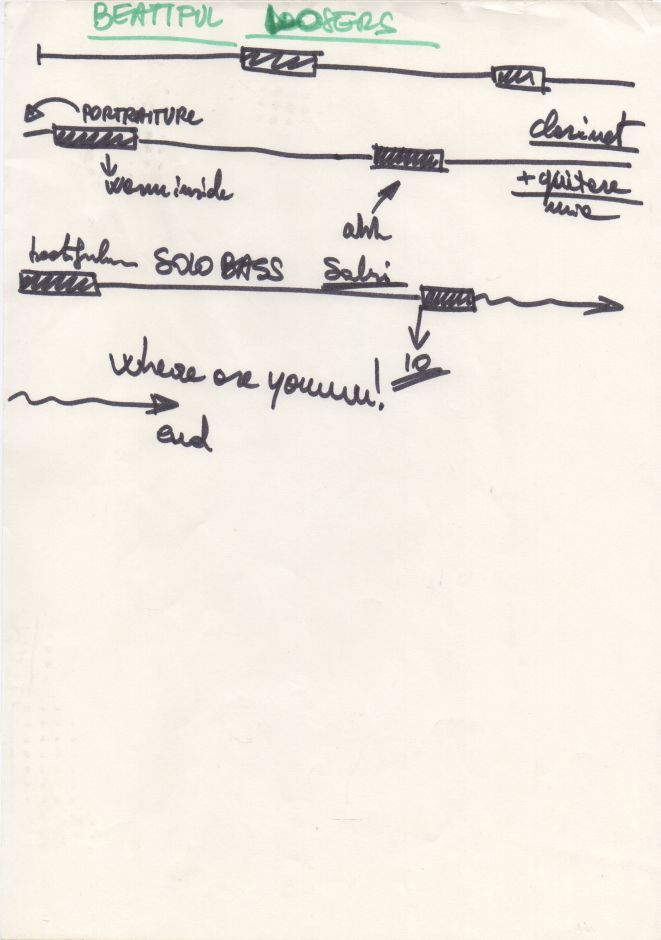 BEATIFUL LOOSERS
PORTRAITURE
clarinet
warm inside
+ guitare
ahh
SOLO BASS
Sabri
10
where are youuuu!
end